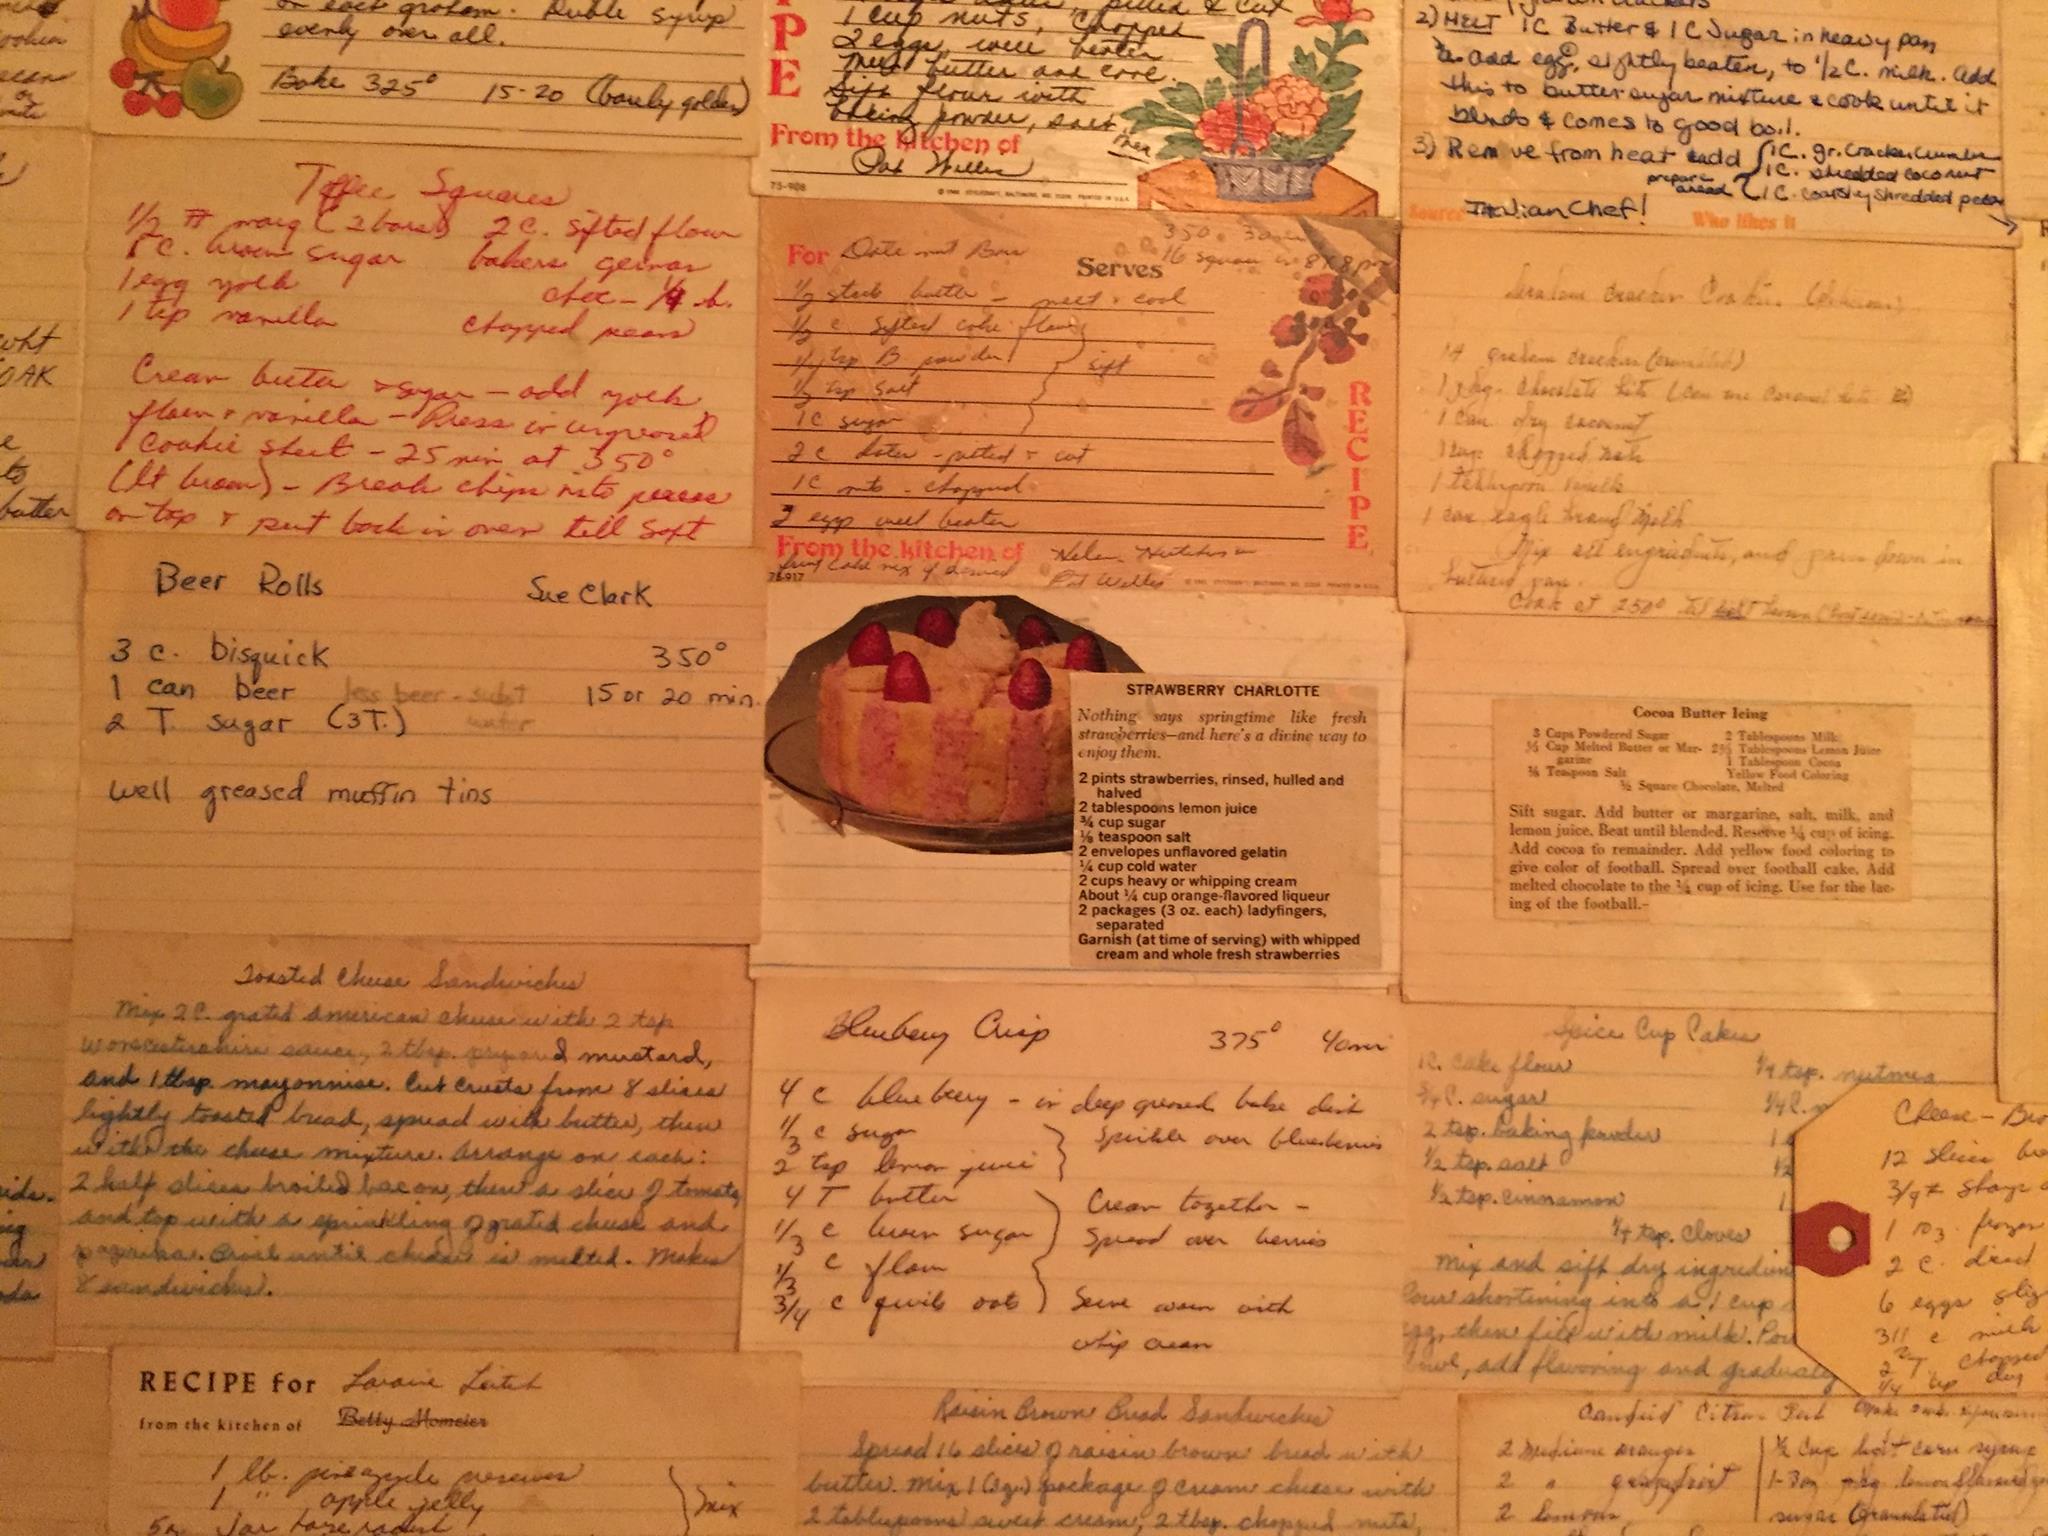 on each graham. Dribble syrup
evenly over all.
Bake 325° 15-20 (barely golden)
P
E
1 cup nuts, chopped
2 eggs, well beaten
Melt butter and cool.
Sift flour with
baking powder, salt
then
From the kitchen of
Pat Willis
75-908
2) MELT 1C Butter & 1C Sugar in heavy pan
add egg, slightly beaten, to 1/2 C. milk. add
this to butter sugar mixture & cook until it
blends & comes to good boil.
3) Remove from heat & add 1C. gr. cracker crumbs
prepare ahead 1C. shredded coconut
1C. coarsley shredded pecans
Source Italian Chef! Who likes it
Toffee Squares
1/2 # marg (2 bars) 2 C. sifted flour
1 C. brown sugar bakers german
1 egg yolk choc - 1/4 lb.
1 tsp vanilla chopped pecans
Cream butter & sugar - add yolk
flour & vanilla - Press in ungreased
cookie sheet - 25 min at 350°
(lt brown) - Break chips into pieces
on top & put back in oven till soft
For Date nut Bars 350° 30 min
Serves 16 squares in 8x8 pan
1/2 stick butter - melt & cool
1/2 c sifted cake flour
1/2 tsp B powder sift
1/2 tsp salt
1C sugar
2 c dates - pitted & cut
1C nuts - chopped
2 eggs well beaten
RECIPE
From the kitchen of Helen
fruit cake mix if desired Pat Willis
75-917
Graham Cracker Cookies (delicious)
graham cracker (crumbled)
1 pkg. chocolate bits (can use caramel bits
1 can dry coconut
1 cup chopped nuts
1 teaspoon vanilla
1 can eagle brand milk
Mix all engredients, and press down in
buttered pan.
Cook at 250° til
Beer Rolls Sue Clark
3 c. bisquick 350°
1 can beer less beer - subst water 15 or 20 min.
2 T. sugar (3T.)
well greased muffin tins
STRAWBERRY CHARLOTTE
Nothing says springtime like fresh
strawberries—and here's a divine way to
enjoy them.
2 pints strawberries, rinsed, hulled and
halved
2 tablespoons lemon juice
¾ cup sugar
⅛ teaspoon salt
2 envelopes unflavored gelatin
¼ cup cold water
2 cups heavy or whipping cream
About ¼ cup orange-flavored liqueur
2 packages (3 oz. each) ladyfingers,
separated
Garnish (at time of serving) with whipped
cream and whole fresh strawberries
Cocoa Butter Icing
3 Cups Powdered Sugar 2 Tablespoons Milk
⅓ Cup Melted Butter or Mar- 2½ Tablespoons Lemon Juice
garine 1 Tablespoon Cocoa
⅛ Teaspoon Salt Yellow Food Coloring
½ Square Chocolate, Melted
Sift sugar. Add butter or margarine, salt, milk, and
lemon juice. Beat until blended. Reserve ¼ cup of icing.
Add cocoa to remainder. Add yellow food coloring to
give color of football. Spread over football cake. Add
melted chocolate to the ¼ cup of icing. Use for the lac-
ing of the football.-
Toasted Cheese Sandwiches
Mix 2 C. grated american cheese with 2 tsp
worcestershire sauce, 2 tbsp. prepared mustard,
and 1 tbsp. mayonnise. Cut crusts from 8 slices
lightly toasted bread, spread with butter, then
with the cheese mixture. Arrange on each:
2 half slices broiled bacon, then a slice of tomato,
and top with a sprinkling of grated cheese and
paprika. Broil until cheese is melted. Makes
8 sandwiches.
Blueberry Crisp 375° 40 min
4 c blueberry - in deep greased bake dish
1/3 c sugar Sprinkle over blueberries
2 tsp lemon juice
4 T butter Cream together -
1/3 c brown sugar Spread over berries
1/3 c flour
3/4 c quick oats Serve warm with
whip cream
Spice Cup Cakes
1C. cake flour 1/4 tsp. nutmeg
3/4 C. sugar 1/4 C.
2 tsp. baking powder 1
1/2 tsp. salt 1/2
1/2 tsp. cinnamon 1
1/4 tsp. cloves
Mix and sift dry ingredien
Pour shortening into a 1 cup
egg, then fill with milk. Pou
bowl, add flavoring and gradually
Cheese - Bro
12 slices
3/4 # sharp
1 10 oz frozen
2 c. diced
6 eggs slig
3 1/2 c milk
2 T chopped
1/4 tsp dry
RECIPE for Loraine Leitch
from the kitchen of Betty Homeier
1 lb. pineapple preserves
1 " apple jelly mix
5 oz jar horseradish
Raisin Brown Bread Sandwiches
Spread 16 slices of raisin brown bread with
butter. Mix 1 (3 oz) package of cream cheese with
2 tablespoons sweet cream, 2 tbsp. chopped nuts,
Candied Citrus Peel
2 medium oranges 1/2 cup light corn syrup
2 " grapefruit 1-3 oz pkg. lemon flavored
2 lemons sugar (granulated)